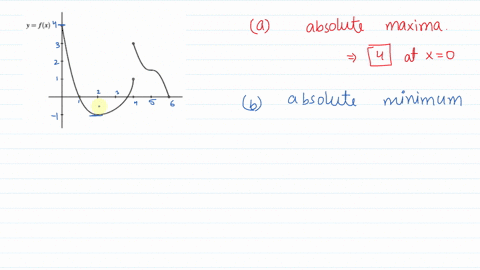 (a) absolute maxima.
⇒ 4 at x=0
(b) absolute minimum
y = f(x)
4
3
2
1
-1
1 2 3 4 5 6